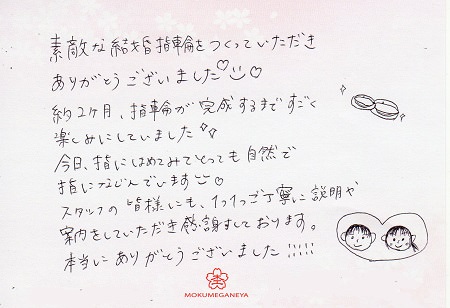 素敵な結婚指輪をつくっていただき
ありがとうございました♡☺♡
約2ヶ月、指輪が完成するまですごく
楽しみにしていました
今日、指にはめてみてとっても自然で
指になじんでいます☺♡
スタッフの皆様にも、1つ1つご丁寧に説明や
案内をしていただき感謝しております。
本当にありがとうございました!!!!!
MOKUMEGANEYA